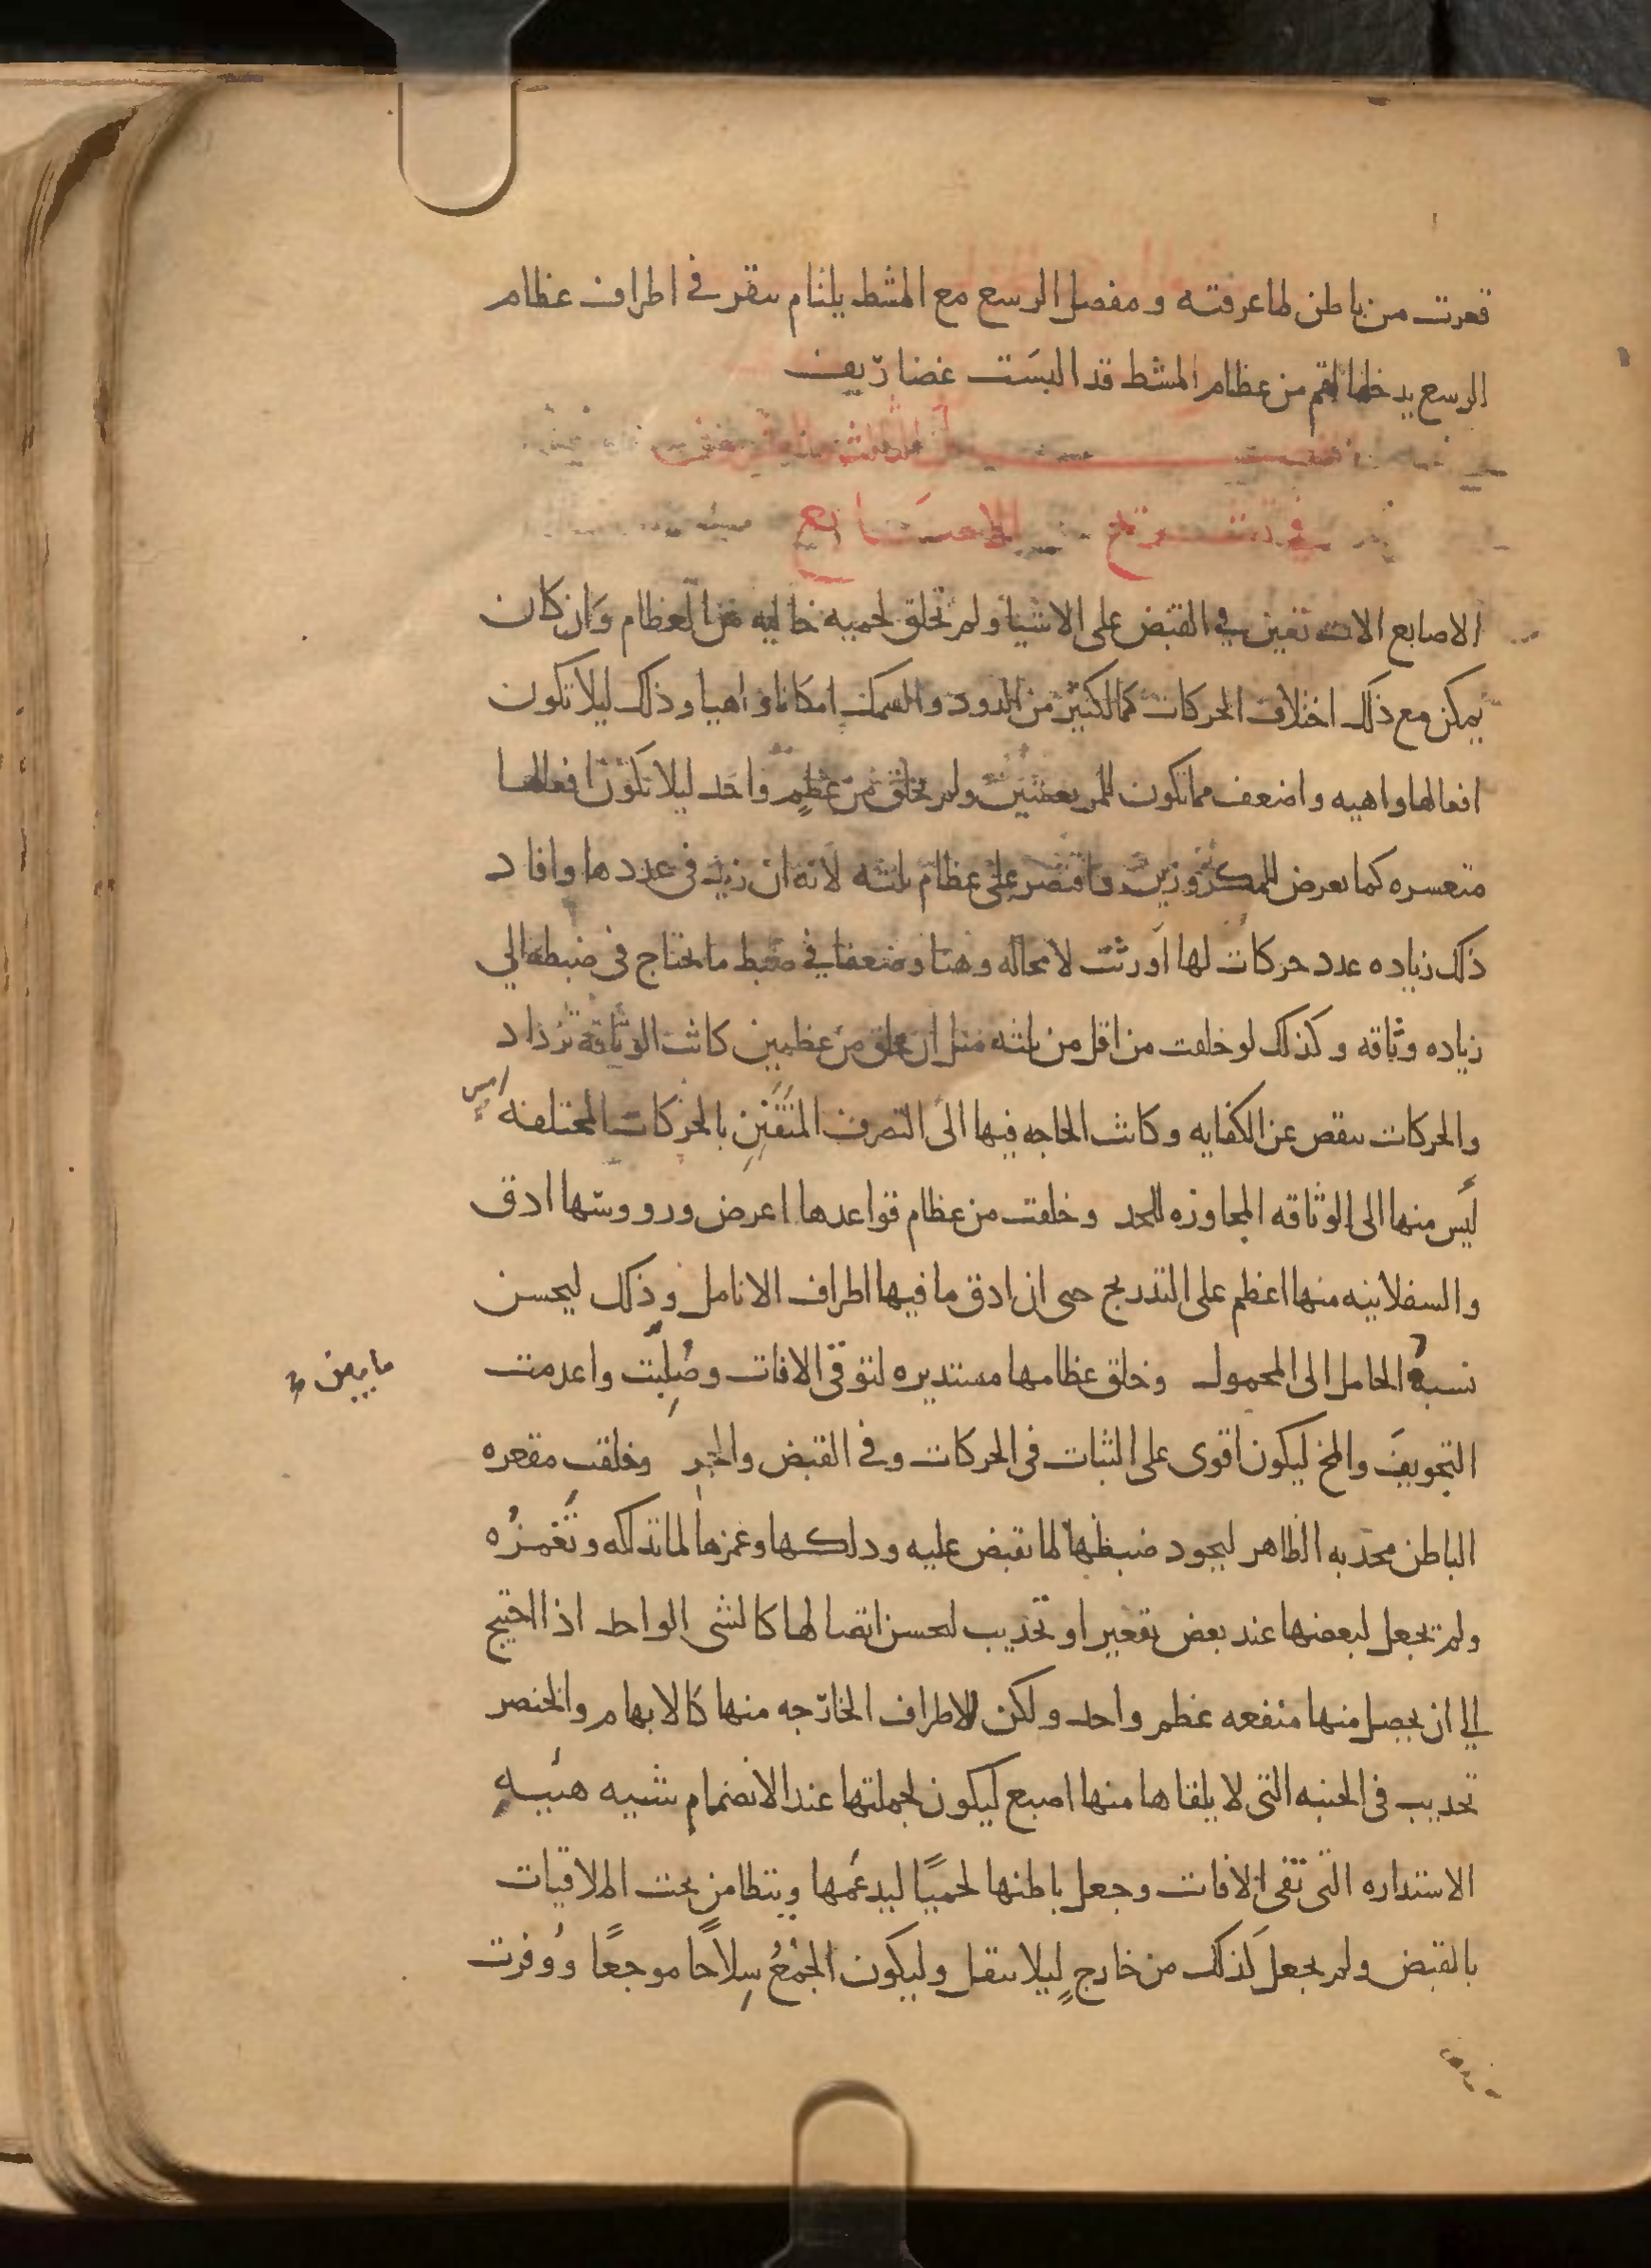 قعرت من باطن لما عرفته ومفصل الرسغ مع المشط يلتام بنقر في اطراف عظام
الرسغ يدخلها لقم من عظام المشط قد البست غضاريف
في تشريح الاصابع
الاصابع الات تعين في القبض على الاشيا ولم تخلق لحميه خاليه من العظام وان كان
يمكن مع ذلك اختلاف الحركات كما لكثير من الدود والسمك امكانا واهيا وذلك ليلا تكون
افعالها واهيه واضعف مما تكون للمرتعشين ولم تخلق من عظم واحد ليلا تكون افعالها
متعسره كما يعرض للمكزوزين واقتصر على عظام ثلثه لانه ان زيد في عددها وافاد
ذلك زياده عدد حركات لها اورثت لا محاله وهنا وضعفا في ضبط ما يحتاج في ضبطه الي
زياده وثاقه وكذلك لو خلقت من اقل من ثلثه مثل ان تخلق من عظمين كانت الوثاقة تزداد
والحركات تنقص عن الكفايه وكانت الحاجه فيها الى التصرف المتفنن بالحركات المختلفه امس
ليس منها الى الوثاقه المجاوزه للحد وخلقت من عظام قواعدها اعرض ورووسها ادق
والسفلانيه منها اعظم على التدريج حتى ان ادق ما فيها اطراف الانامل وذلك ليحسن
نسبة الحامل الى المحمول وخلق عظامها مستديره لتوقى الافات وصلبت واعدمت
التجويف والمخ ليكون اقوى على الثبات في الحركات وفي القبض والجر وخلقت مقعره
الباطن محدبه الظاهر ليجود ضبطها لما تقبض عليه ودلكها وغمزها لما تدلكه وتغمزه
ولم يجعل لبعضها عند بعض تقعير او تحديب ليحسن اتصالها كالشي الواحد اذا احتيج
الي ان يحصل منها منفعه عظم واحد ولكن للاطراف الخارجه منها كالابهام والخنصر
تحديب في الجنبه التي لا يلقاها منها اصبع ليكون لجملتها عند الانضمام شبيه هيية
الاستداره التي تقى الافات وجعل باطنها لحميا ليدعمها ويتطامن تحت الملاقيات
بالقبض ولم يجعل كذلك من خارج ليلا تثقل وليكون الجمع سلاحا موجعا ووفرت